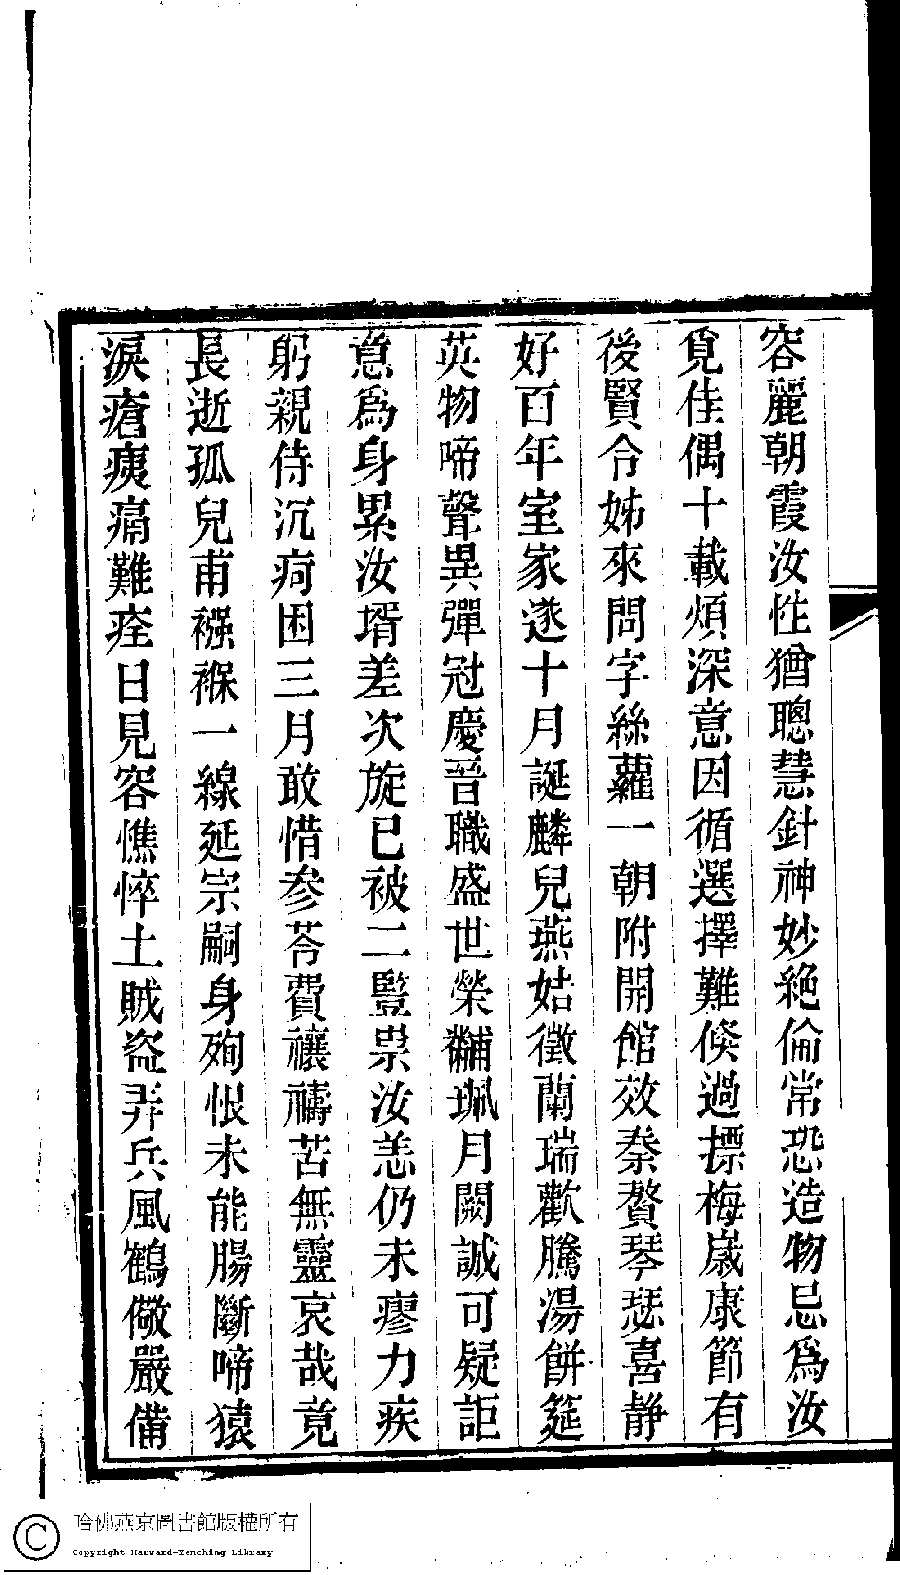 容麗朝霞汝性猶聰慧針神妙絶倫常恐造物忌爲汝
覓佳偶十載煩深意因循選擇難倏過摽梅歲康節有
後賢令姊來問字絲蘿一朝附開館效秦贅琴瑟喜静
好百年室家遂十月誕麟兒燕姞徵蘭瑞歡騰湯餅筵
英物啼聲異彈冠慶晉職盛世榮黼珮月闕誠可疑詎
意爲身累汝壻差次旋已被二豎祟汝恙仍未瘳力疾
躬親侍沉疴困三月敢惜参苓費禳禱苦無靈哀哉竟
長逝孤兒甫襁褓一線延宗嗣身殉恨未能腸斷啼猿
淚瘡痍痛難痊日見容憔悴土賊盜弄兵風鶴儆嚴備
哈佛燕京圖書館版權所有
Copyright Harvard-Yenching Library